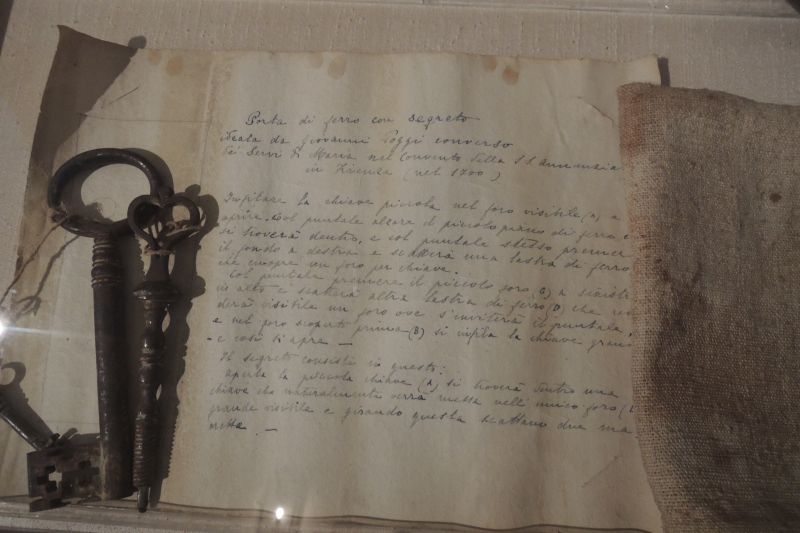 Porta di ferro con segreto
ideata da Giovanni Poggi converso
dei Servi di Maria nel Convento della SS Annunziata
in Firenze (nel 1700)
Infilare la chiave piccola nel foro visibile (A) e
aprire. Col puntale alzare il piccolo piano di ferro, c
si troverà dentro, e col puntale stesso premer
il fondo a destra e scatterà una lastra di ferro
che cuopre un foro per chiave.
Col puntale premere il piccolo foro (C) a sinistr
in alto e scatterà altra lastra di ferro (D) che ren
derà visibile un foro ove s'inviterà il puntale,
e nel foro scoperto prima (B) si infila la chiave grand
e così si apre —
Il segreto consiste in questo:
aperta la piccola chiave (A) si troverà dentro una
chiave che naturalmente verrà messa nell'unico foro
grande visibile e girando questa scattano due ma
nette. —